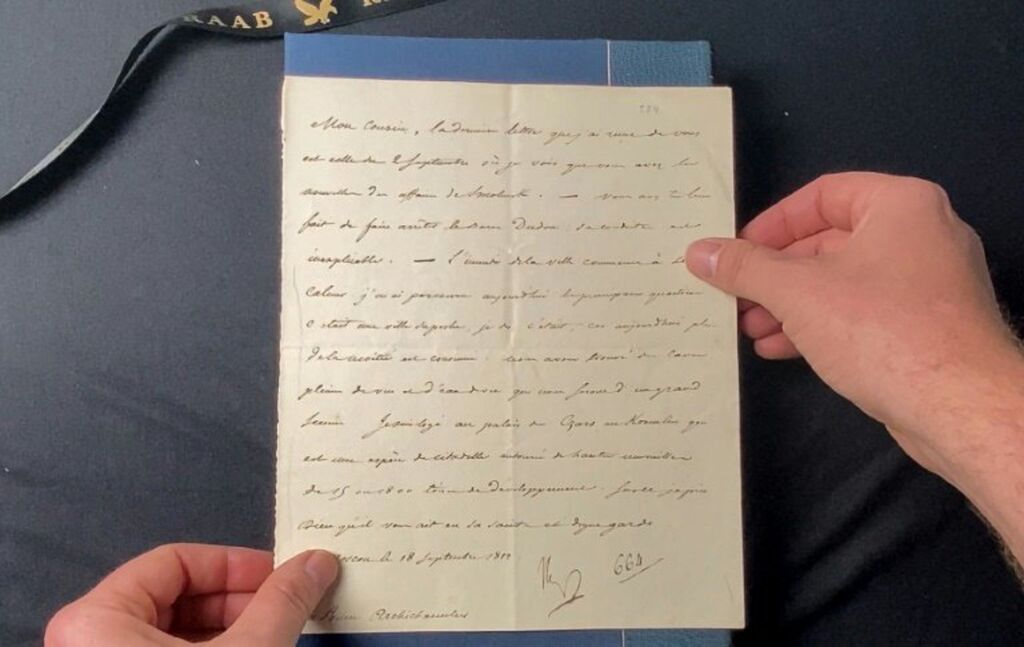 RAAB
224
Mon Cousin, la dernière lettre que j'ai reçue de vous
est celle du 2 Septembre où je vois que vous avez les
nouvelles des affaires de Smolensk. — Vous avez très bien
fait de faire arrêter le Baron Dudon: sa conduite est
inexplicable. — L'incendie de la ville commence à
calmer j'en ai parcouru aujourd'hui les principaux quartiers
c'était une ville superbe; je dis c'était, car aujourd'hui plus
de la moitié est consumée: nous avons trouvé des caves
pleines de vin et d'eau de vie qui nous seront d'un grand
secours Je suis logé au palais des Czars au Kremlin qui
est une espèce de citadelle entourée de hautes murailles
de 15 ou 1800 toises de développement. Sur ce je prie
Dieu qu'il vous ait en sa sainte et digne garde
Moscou le 18 Septembre 1812
Np
664
Archichancelier